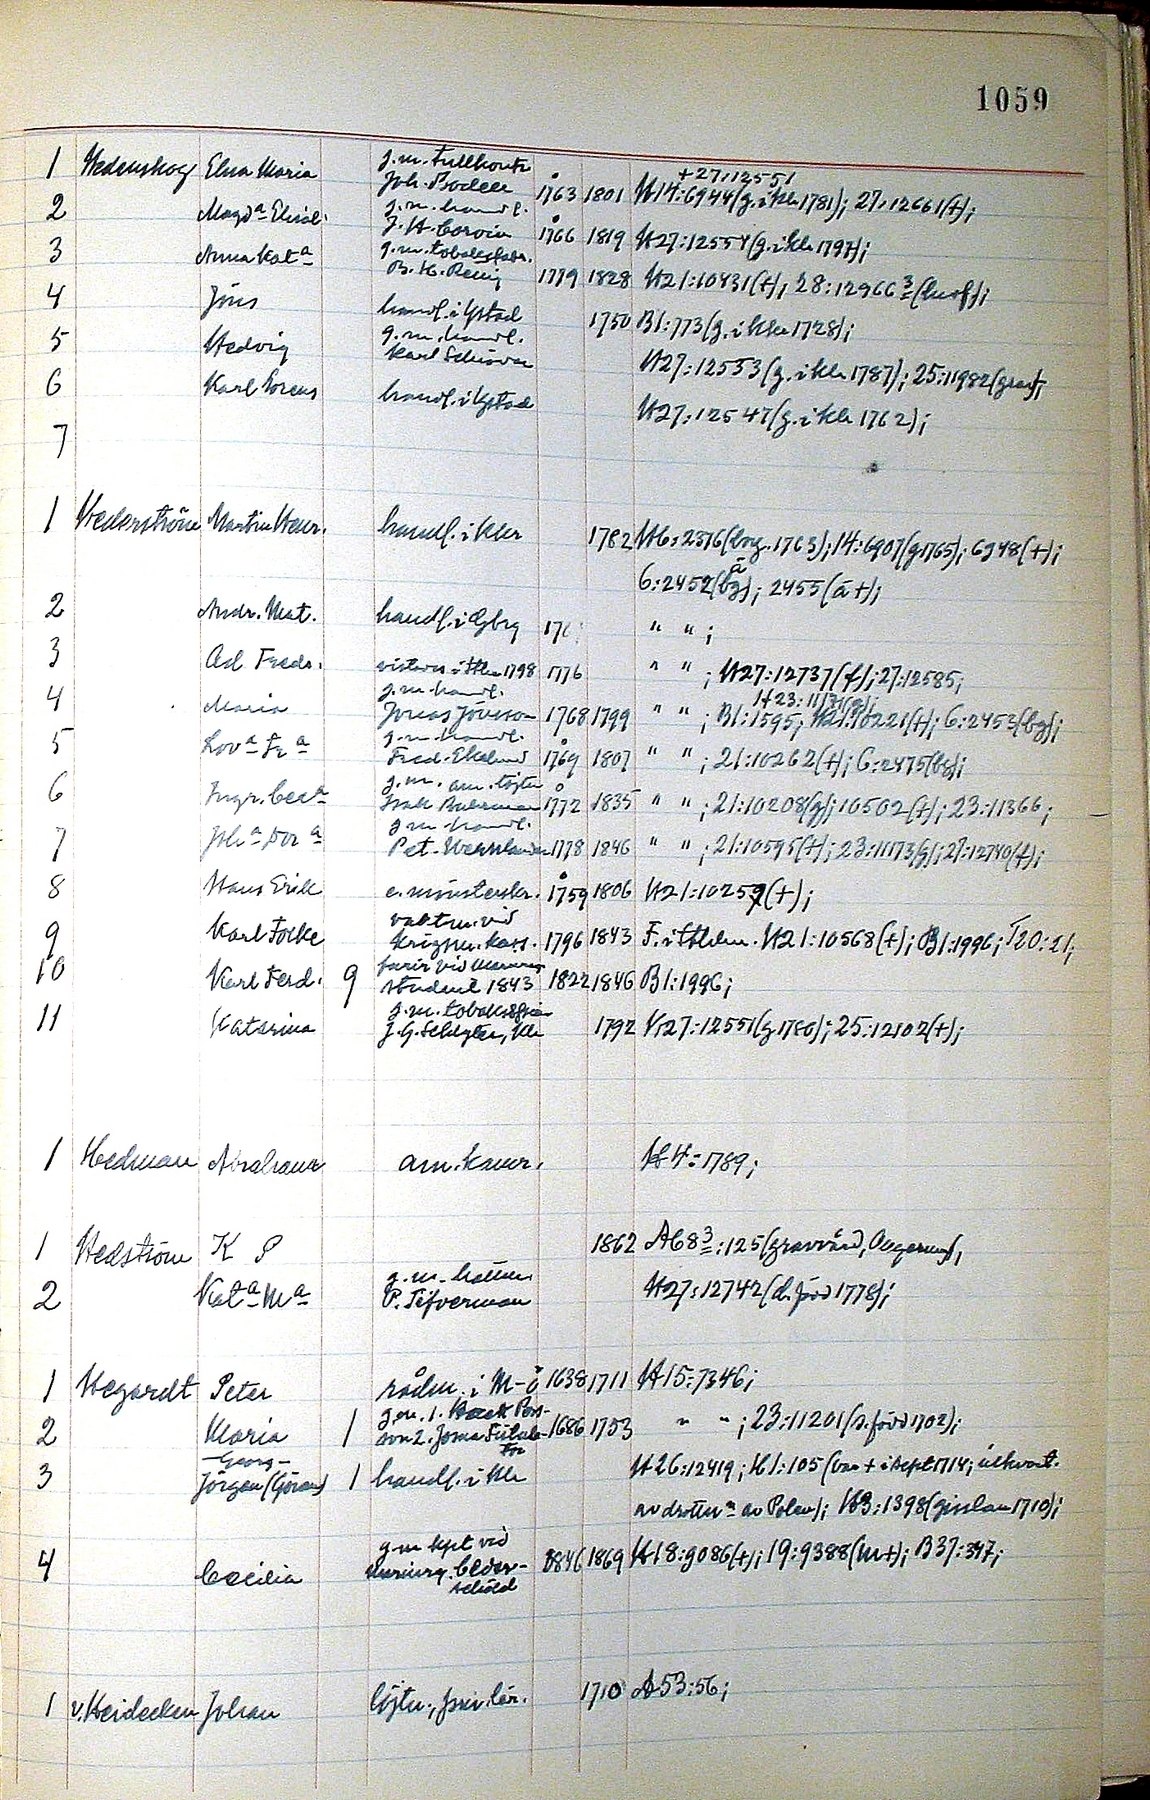 1059
g.m. tullkontr.
1 Hedenskog Elna Maria Joh. Bodell 1763 1801 H14:6944 (g. i Khn 1781); 27:12661 (+);
+27:12551
2 Magda Elisab. g.m. handl. J. H. Corvin 1766 1819 H27:12554 (g. i Khn 1797);
3 Anna Kata g.m. tobaksfabr. B. H. Rettig 1779 1828 H21:10431 (+), 28:12966
4 Jöns handl. i Ystad 1750 B1:773 (g. i Khn 1728);
5 Hedvig g.m. handl. Karl H27:12553 (g. i Khn 1787); 25:11982 (grav);
6 Karl Lorens handl. i Ystad H27:12547 (g. i Khn 1762);
7
1 Hederström Martin Henr. handl. i Khn 1782 H6:2376 1763); 14:6907 (g 1765); 6948 (+);
6:2452 (bg); 2455 (å +);
2 Andr. Mat. handl. i Gbrg " " ;
3 Ad. Fredr. vistas i Khn 1798 1776 " " ; H27:12737 (f); 27:12585;
H23:11171 (g);
4 Maria g.m. handl. Jonas Jönsson 1768 1799 " " ; B1:1595; H21:10221 (+); 6:2453 (bg);
5 Lova Fra g.m. handl. Fred. Ekelund 1769 1807 " " ; 21:10262 (+); 6:2475 (bg);
6 Ingr. Ceca g.m. am. löjtn 1772 1835 " " ; 21:10208 (g); 10502 (+); 23:11366;
7 Joha Dora g.m. handl. Pet. 1778 1846 " " ; 21:10595 (+); 23:11173 (g); 27:12740 (f);
8 Hans Erik e. mönsterskr. 1759 1806 H21:10257 (+);
9 Karl Focke vaktm. vid krigsm. kass. 1796 1843 F. i Sthlm. H21:10568 (+); B1:1996; T20:21;
10 Karl Ferd. 9 student 1843 1822 1846 B1:1996;
11 Katarina g.m. J. G. Schlyter, Khn 1792 H27:12551 (g 1780); 25:12102 (+);
1 Hedman Abraham am. kamr. H4:1789;
1 Hedström K P 1862 A683:125 (gravvård, Augerum),
2 Kata Ma g.m. båtsm. P. Sifverman H27:12742 (d. född 1778);
1 Hegardt Peter rådm. i M-ö 1638 1711 H15:7346;
2 Maria 1 1686 1753 " " ; 23:11201 (s. född 1702);
Georg
3 Jörgen (Göran) 1 handl. i Khn H26:12419; H1:105 (var + i sept 1714;
av drottn:a av Polen); H3:1398 (gisslan 1710);
4 Cecilia g.m. kpt vid 1846 1869 H18:9086 (+); 19:9388 (m+); B37:347;
1 v. Heidecken Johan löjtn, 1710 A53:56;